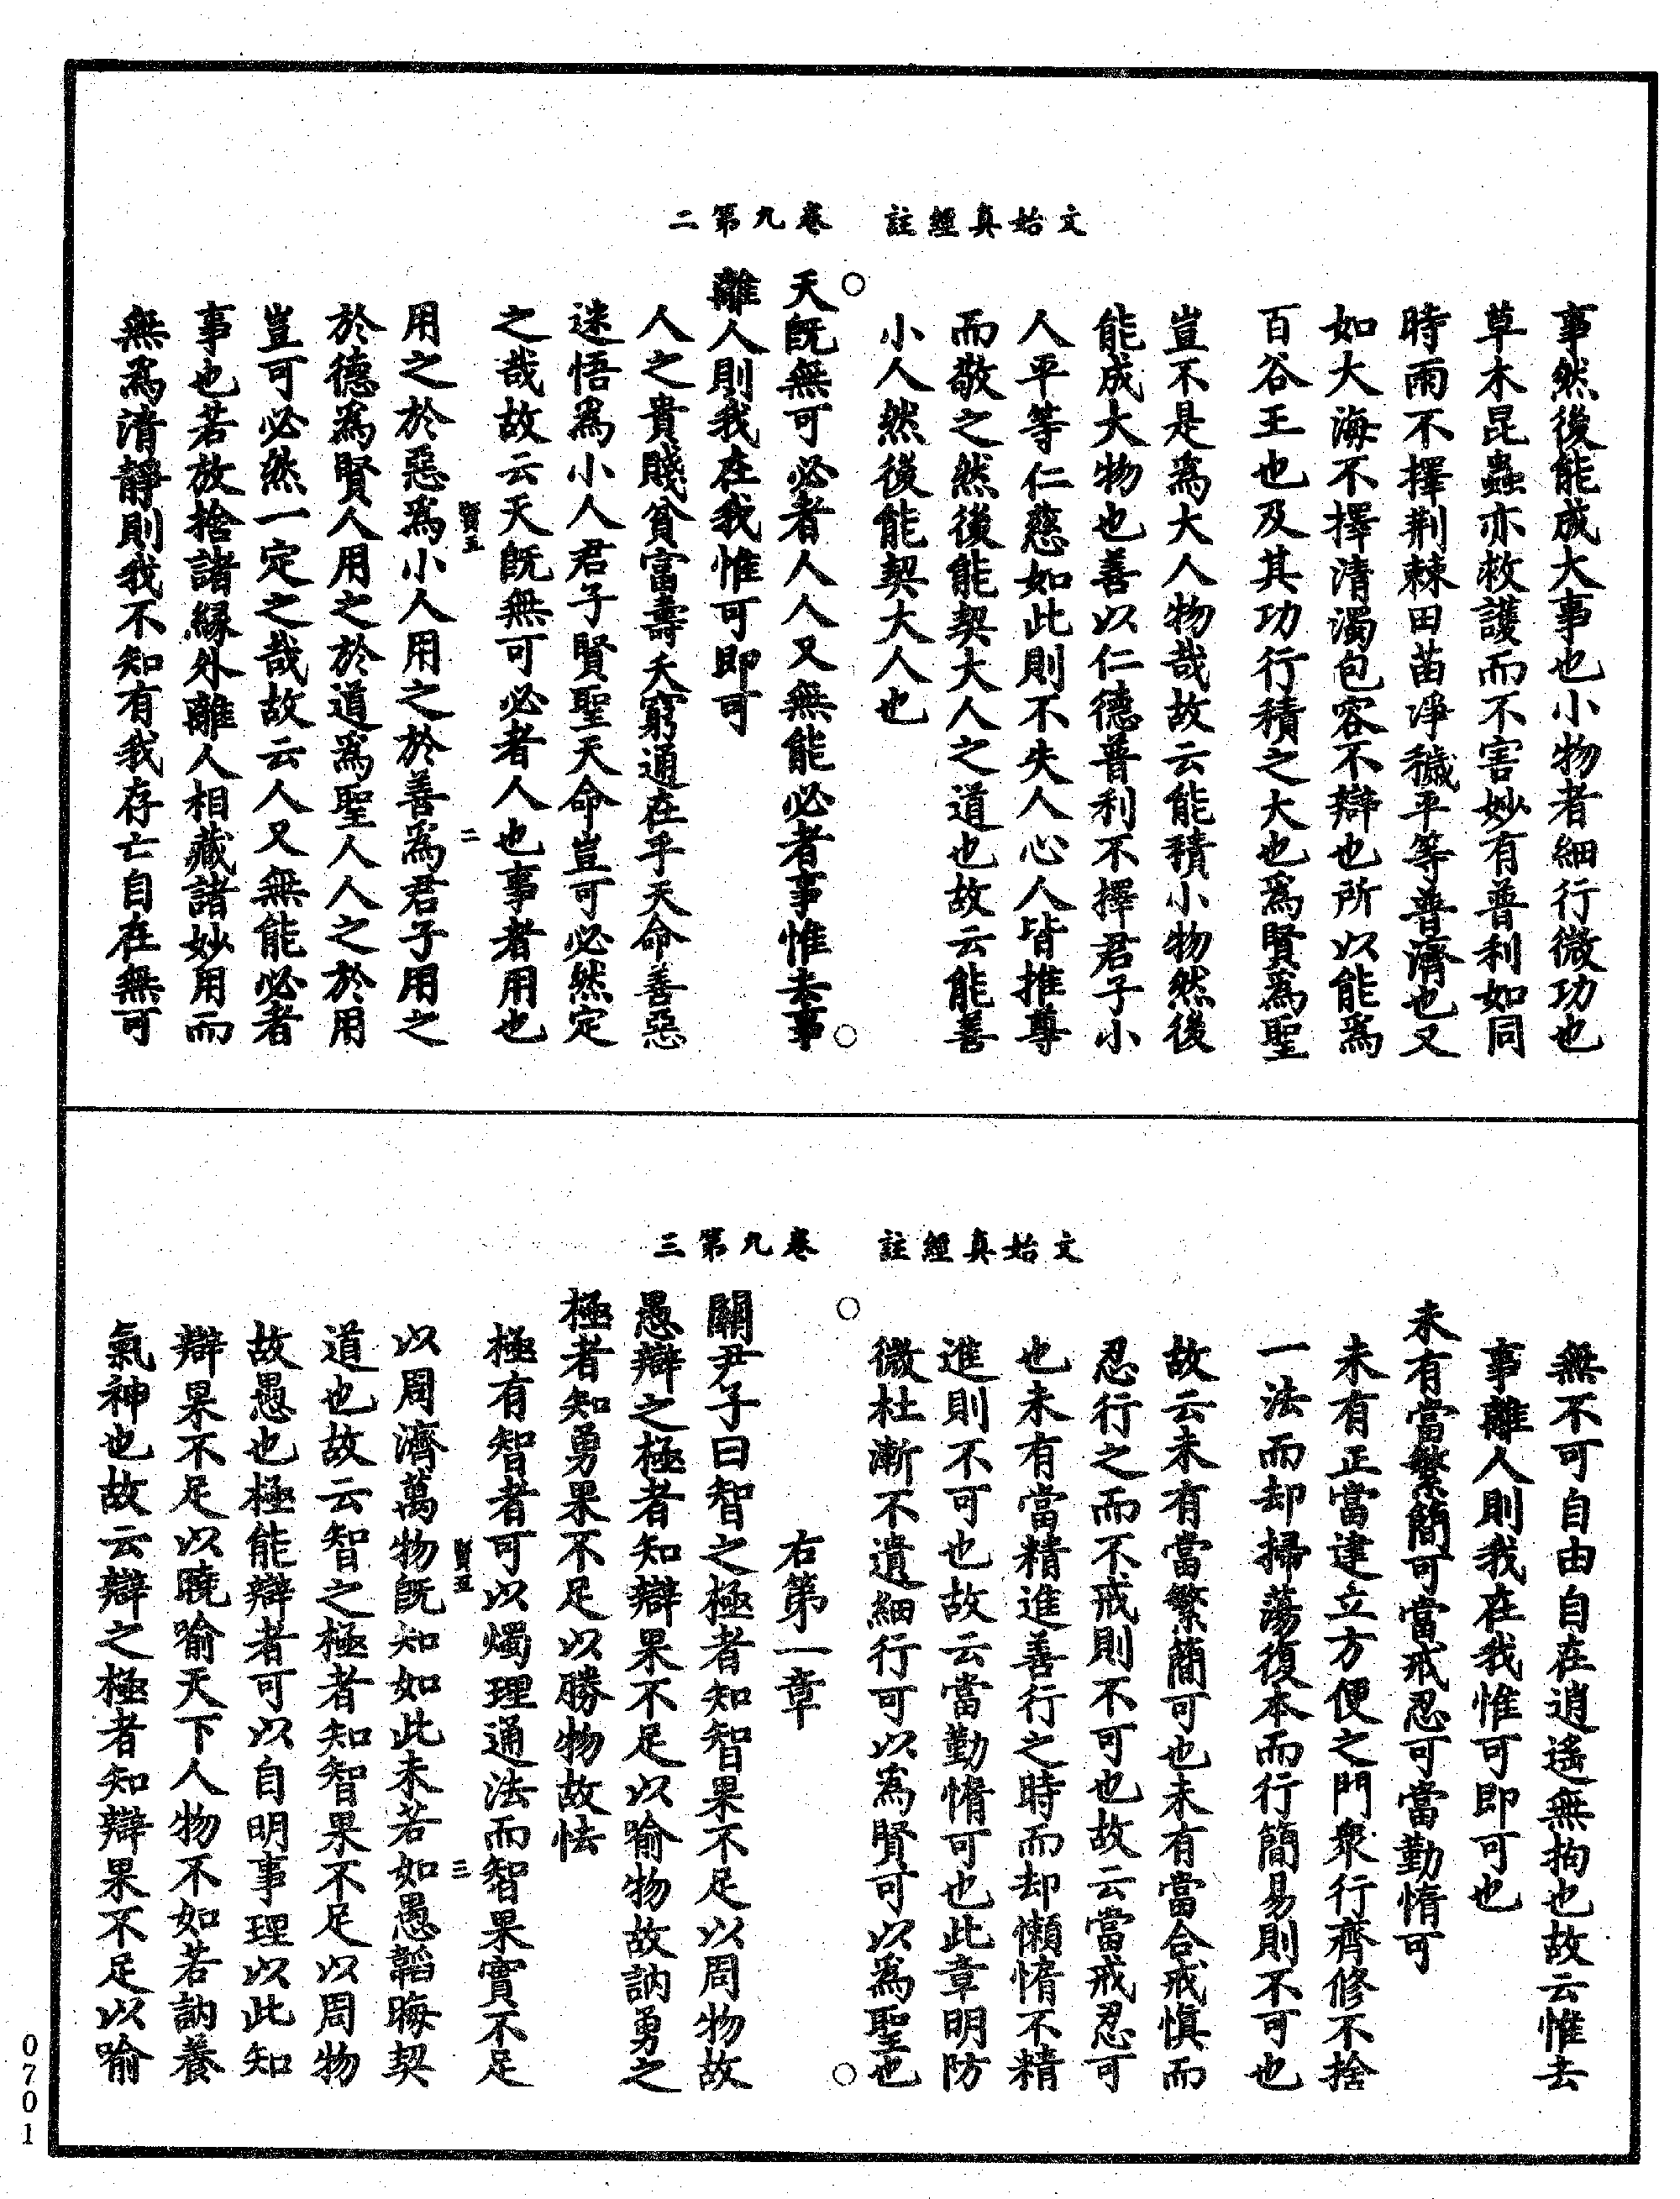 文始真經註　卷九第二
事然後能成大事也小物者細行微功也
草木昆蟲亦救護而不害妙有普利如同
時雨不擇荆棘田苗淨穢平等普濟也又
如大海不擇清濁包容不辯也所以能爲
百谷王也及其功行積之大也爲賢爲聖
豈不是爲大人物哉故云能積小物然後
能成大物也善以仁德普利不擇君子小
人平等仁慈如此則不失人心人皆推尊
而敬之然後能契大人之道也故云能善
小人然後能契大人也
○天既無可必者人人又無能必者事惟去事○
離人則我在我惟可即可
人之貴賤貧富壽夭窮通在乎天命善惡
迷悟爲小人君子賢聖天命豈可必然定
之哉故云天既無可必者人也事者用也
賢五　二
用之於惡爲小人用之於善爲君子用之
於德爲賢人用之於道爲聖人人之於用
豈可必然一定之哉故云人又無能必者
事也若放捨諸緣外離人相藏諸妙用而
無爲清靜則我不知有我存亡自在無可
文始真經註　卷九第三
無不可自由自在逍遙無拘也故云惟去
事離人則我在我惟可即可也
未有當繁簡可當戒忍可當勤惰可
未有正當建立方便之門衆行齊修不捨
一法而却掃蕩復本而行簡易則不可也
故云未有當繁簡可也未有當合戒慎而
忍行之而不戒則不可也故云當戒忍可
也未有當精進善行之時而却懶惰不精
進則不可也故云當勤惰可也此章明防
微杜漸不遺細行可以爲賢可以爲聖也
○　右第一章　○
關尹子曰智之極者知智果不足以周物故
愚辯之極者知辯果不足以喻物故訥勇之
極者知勇果不足以勝物故怯
極有智者可以燭理通法而智果實不足
賢五　三
以周濟萬物既知如此未若如愚韜晦契
道也故云智之極者知智果不足以周物
故愚也極能辯者可以自明事理以此知
辯果不足以曉喻天下人物不如若訥養
氣神也故云辯之極者知辯果不足以喻
0701